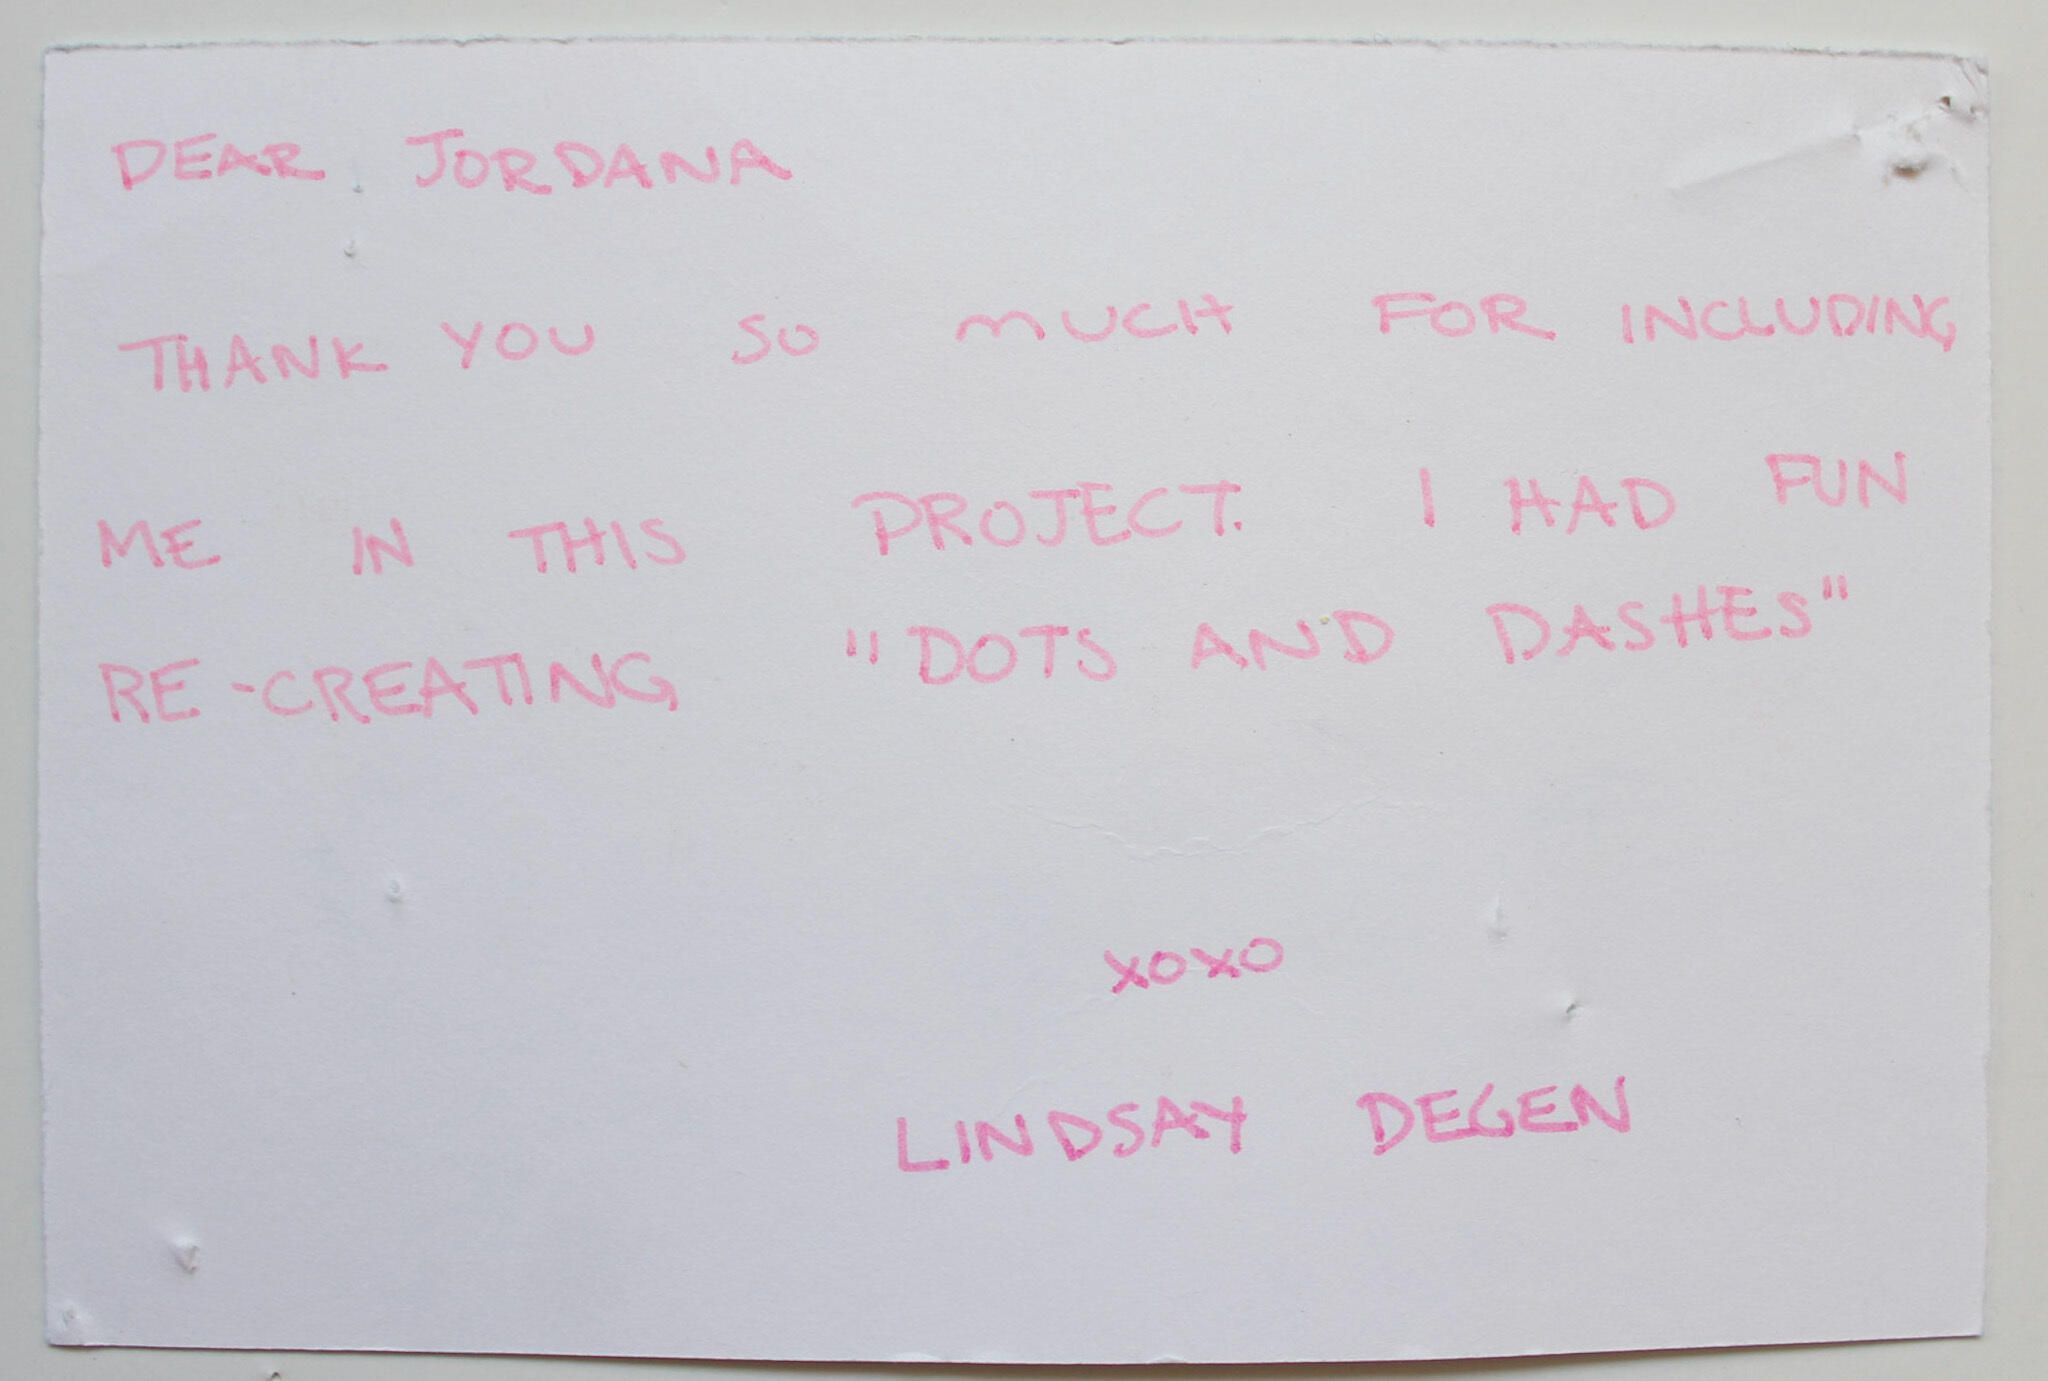 DEAR JORDANA
THANK YOU SO MUCH FOR INCLUDING
ME IN THIS PROJECT. I HAD FUN
RE-CREATING "DOTS AND DASHES"
XOXO
LINDSAY DEGEN